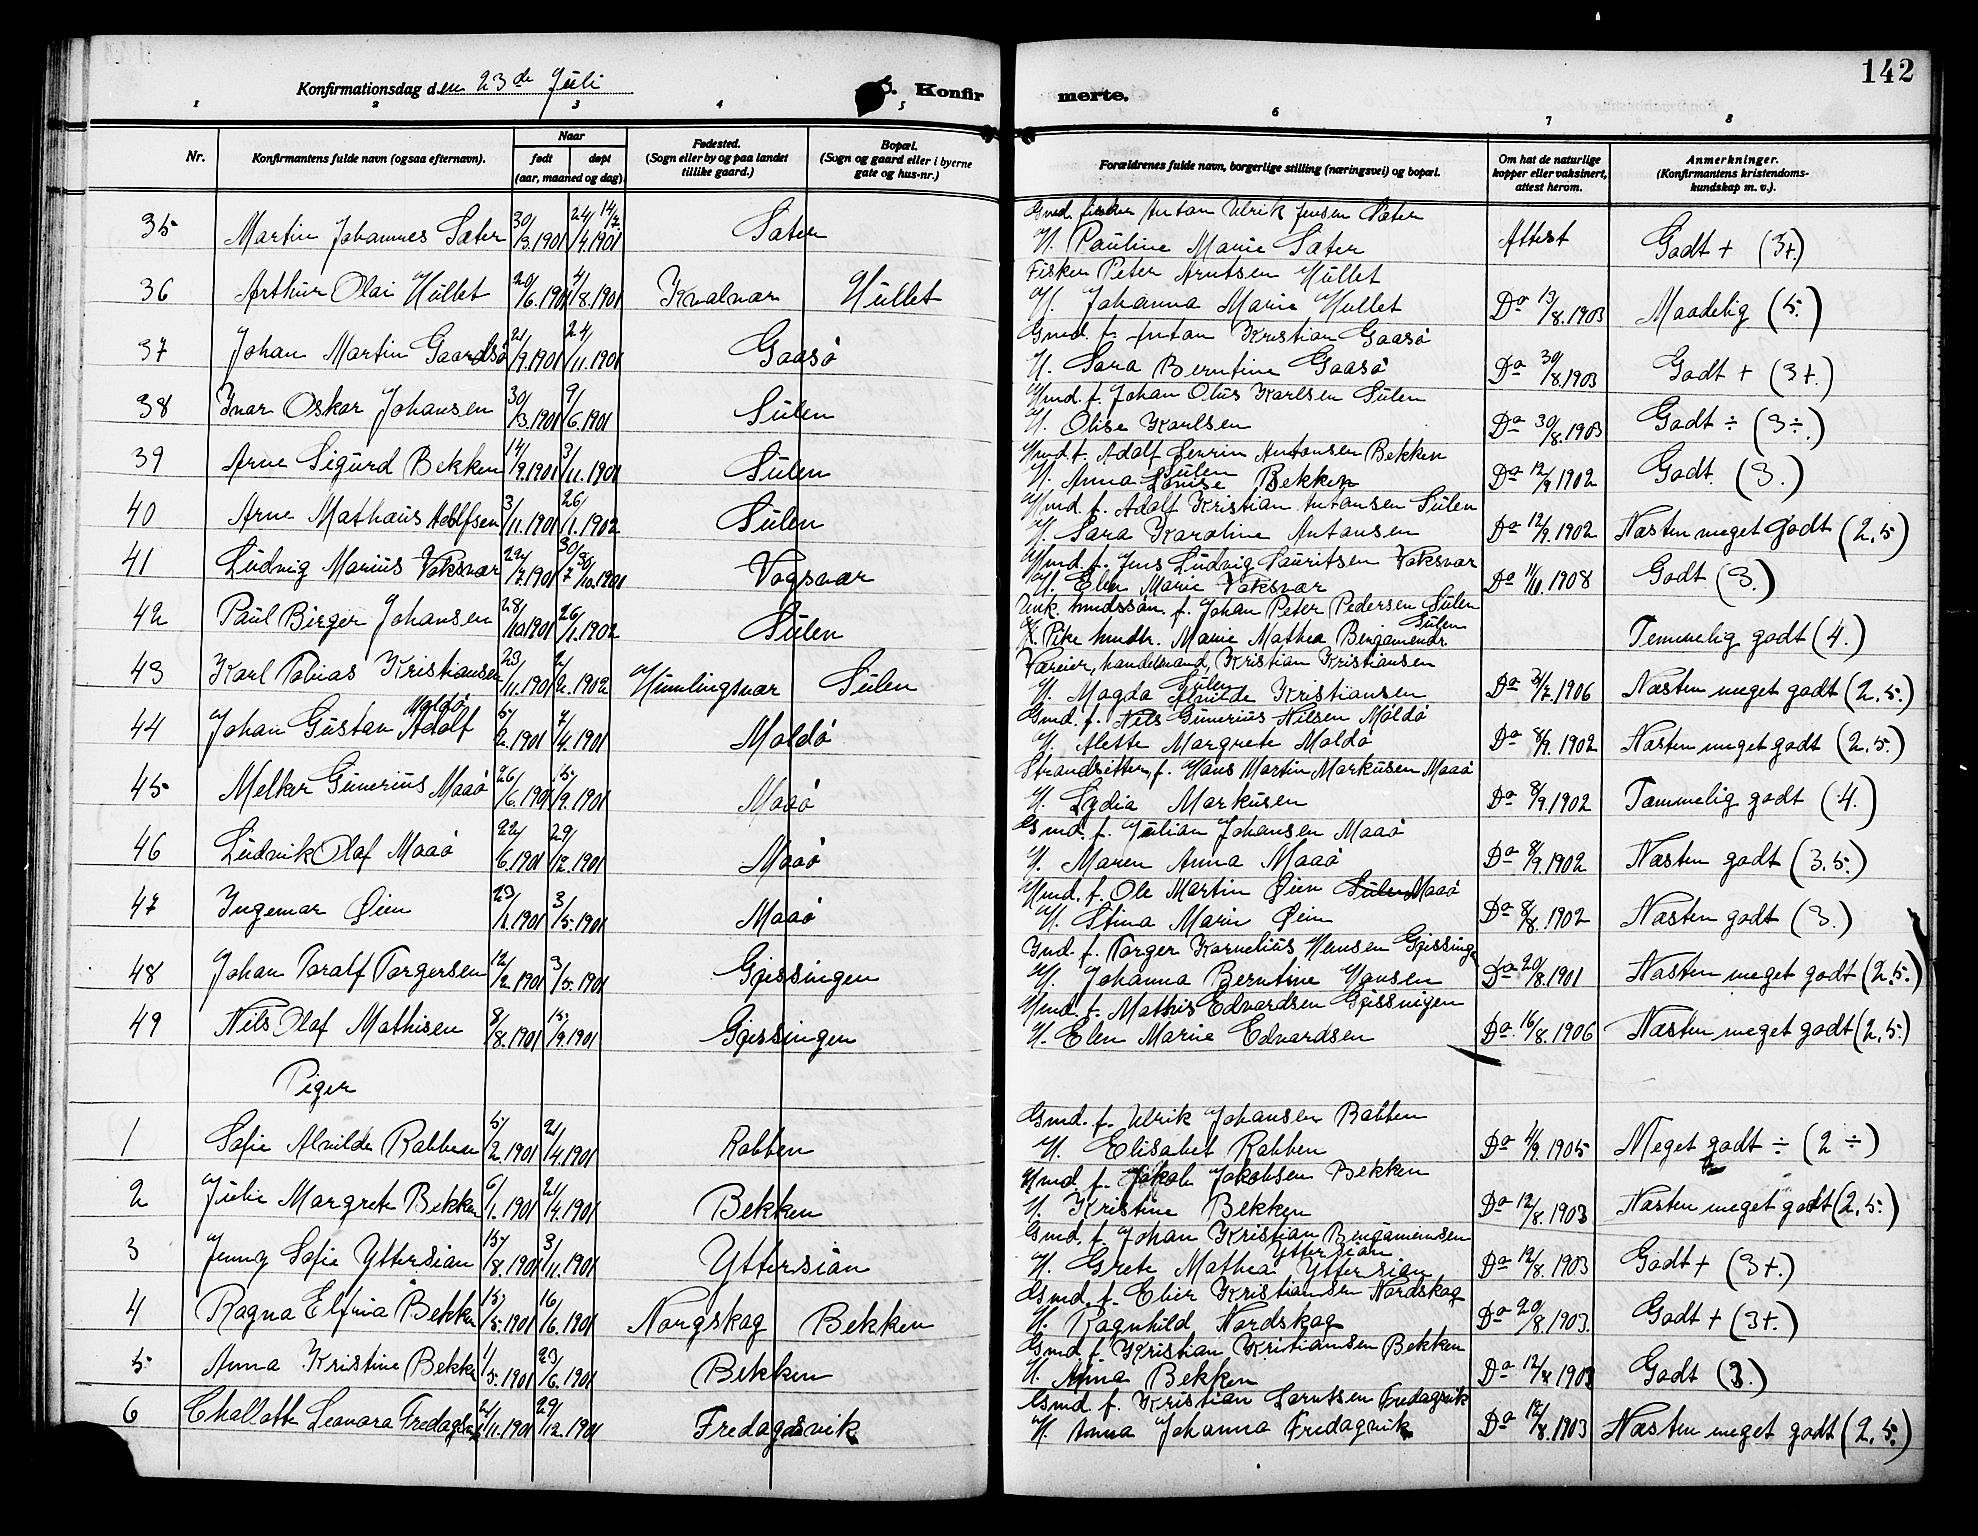 142
Konfirmationsdag den 23de Juli
Konfirmerte.
1 2 3 4 5 6 7 8
Nr.
Konfirmantens fulde navn (ogsaa efternavn).
Naar
født
døpt
(aar, maaned og dag).
Fødested.
(Sogn eller by og paa landet
tillike gaard.)
Bopæl.
(Sogn og gaard eller i byerne
gate og hus-nr.)
Forældrenes fulde navn, borgerlige stilling (næringsvei) og bopæl.
Om hat de naturlige
kopper eller vaksinert,
attest herom.
Anmerkninger.
(Konfirmantens kristendoms-
kundskap m. v.).
35 Martin Johannes Sæter 30/3.1901 Sæter
Gmd. fisker Anton Ulrik Jensen Sæter
H. Pauline Marie Sæter Attest Godt + (3+.)
36 Arthur Olai Hullet 20/6.1901 4/8.1901 Kvalvær Hullet
Fisker Peter Arntsen Hullet
H. Johanna Marie Hullet Do 13/8.1903 Maadelig (5.)
37 Johan Martin Gaardsø 21/9.1901 24/11.1901 Gaasø
Gmd. f. Anton Kristian Gaasø
H. Sara Berntine Gaasø Do 30/8.1903 Godt + (3+.)
38 Ivar Oskar Johansen 30/3.1901 9/6.1901 Sulen
Hmd. f. Johan Olus Karlsen Sulen
H. Olise Karlsen Do 30/8.1903 Godt ÷ (3÷.)
39 Arne Sigurd Bekken 14/9.1901 3/11.1901 Sulen
Hmd. f. Adolf Antonsen Bekken
Sulen
H. Anna Louise Bekken Do 12/9 1902 Godt. (3.)
40 Arne Mathæus Adolfsen 3/11.1901 26/1.1902 Sulen
Hmd. f. Adolf Kristian Antonsen Sulen
H. Sara Karoline Antonsen Do 12/9.1902 Næsten meget godt (2,5)
41 Ludvig Marius Vaksvær 22/7.1901 Vogsvær
Hmd. f. Jens Ludvig Lauritsen Vaksvær
H. Elen Marie Vaksvær Do 11/10.1908 Godt (3.)
42 Paul Birger Johansen 28/10.1901 26/1.1902 Sulen
Johan Peter Pedersen Sulen
Sulen
Pike Marie Mathea Temmelig godt (4.)
43 Karl Tobias Kristiansen 23/11.1901 2/2.1902 Humlingsvær Sulen
handelsmand, Kristian Kristiansen
Sulen
H. Magda Alvilde Kristiansen Næsten meget godt (2,5.)
Moldø
44 Johan Gustav Adolf 5/2.1901 7/4.1901 Moldø
Gmd. f. Nils Gunerius Nilsen Moldø
H. Alette Margrete Moldø Do 8/9.1902 Næsten meget godt (2,5.)
45 Melker Gunerius Maaø 26/6.1901 15/9.1901 Maaø
Strandsitter f. Hans Martin Markusen Maaø
H. Lydia Markusen Do 8/9.1902 Tæmmelig godt (4.)
46 Ludvik Olaf Maaø 22/6.1901 29/12.1901 Maaø
Gmd. f. Julian Johansen Maaø
H. Maren Anna Maaø Do 8/9.1902 Næsten godt (3,5.)
47 Ingemar Øien 23/1.1901 3/5.1901 Maaø
Hmd. f. Ole Martin Øien Sulen Maaø
H. Stina Marie Øien Do 8/8.1902 Næsten godt (3.)
48 Johan Toralf Torgersen 12/2.1901 3/5.1901 Gjessingen
f. Torger Kornelius Hansen Gjessing
H. Johanna Berntine Hansen Do 20/8.1901 Næsten meget godt (2,5.)
49 Nils Olaf Mathisen 8/8.1901 15/9.1901 Gjessingen
Hmd. f. Mathis Edvardsen Gjessingen
H. Elen Marie Edvardsen Do 16/8.1906 Næsten meget godt (2,5.)
Piger
1 Sofie Alvilde Rabben 5/2.1901 21/4.1901 Rabben
Gmd. f. Ulrik Johansen Rabben
H. Elisabet Rabben Do 4/9.1905 Meget godt ÷ (2 ÷)
2 Julie Margrete Bekken 6/1.1901 21/4.1901 Bekken
Hmd. f. Jakob Jakobsen Bekken
H. Kristine Bekken Do 12/8.1903 Næsten meget godt (2,5.)
3 Jenny Sofie Yttersian 15/8.1901 3/11.1901 Yttersian
Gmd. f. Johan Kristian Benjaminsen
Yttersian
H. Grete Mathea Yttersian Do 12/8.1903 Godt + (3+.)
4 Ragna Elfrida Bekken 15/5.1901 16/6.1901 Norgskag Bekken
Gmd. f. Elier Kristiansen Nordskag
H. Ragnhild Nordskag Do 20/8.1903 Godt + (3+.)
5 Anna Kristine Bekken 1/5.1901 23/6.1901 Bekken
Gmd. f. Kristian Kristiansen Bekken
H. Anna Bekken Do 12/8 1903 Godt (3.)
6 Challotte Leonora Fredagsvik 29/12.1901 Fredagsvik
Gmd. f. Kristian Fredagsvik
H. Anna Johanna Fredagsvik Do 12/8.1903 Næsten meget godt (2,5.)